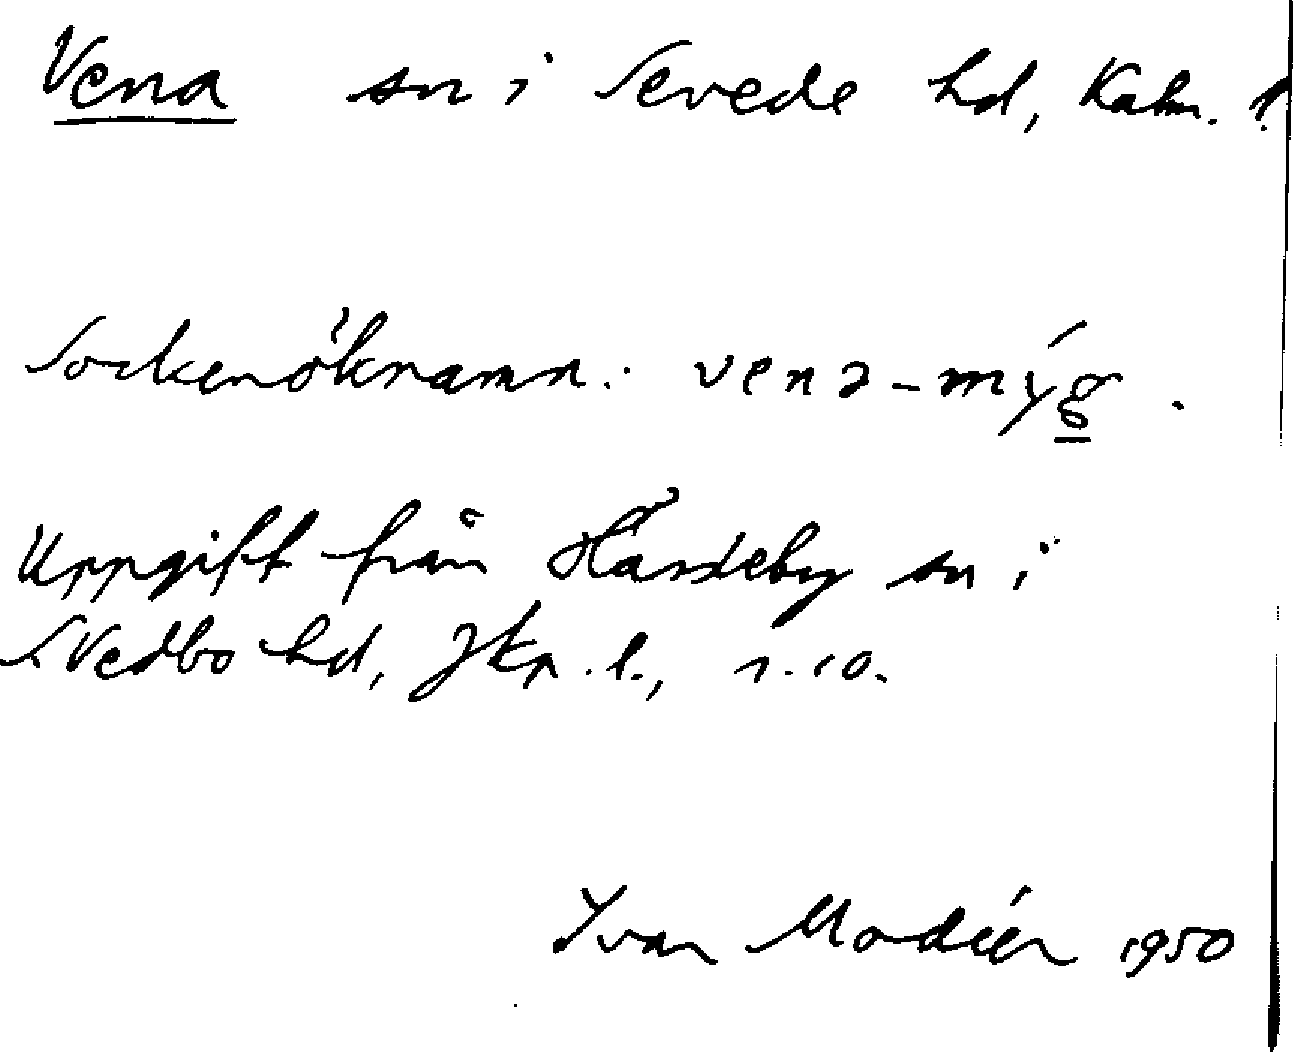 Vena sn i Sevede hd, Kalm. l.
Sockenöknamn: venə-mýg.
Uppgift från Hässleby sn i
S Vedbo hd, Jkp. l., s. 10.
Ivar Modéer 1950